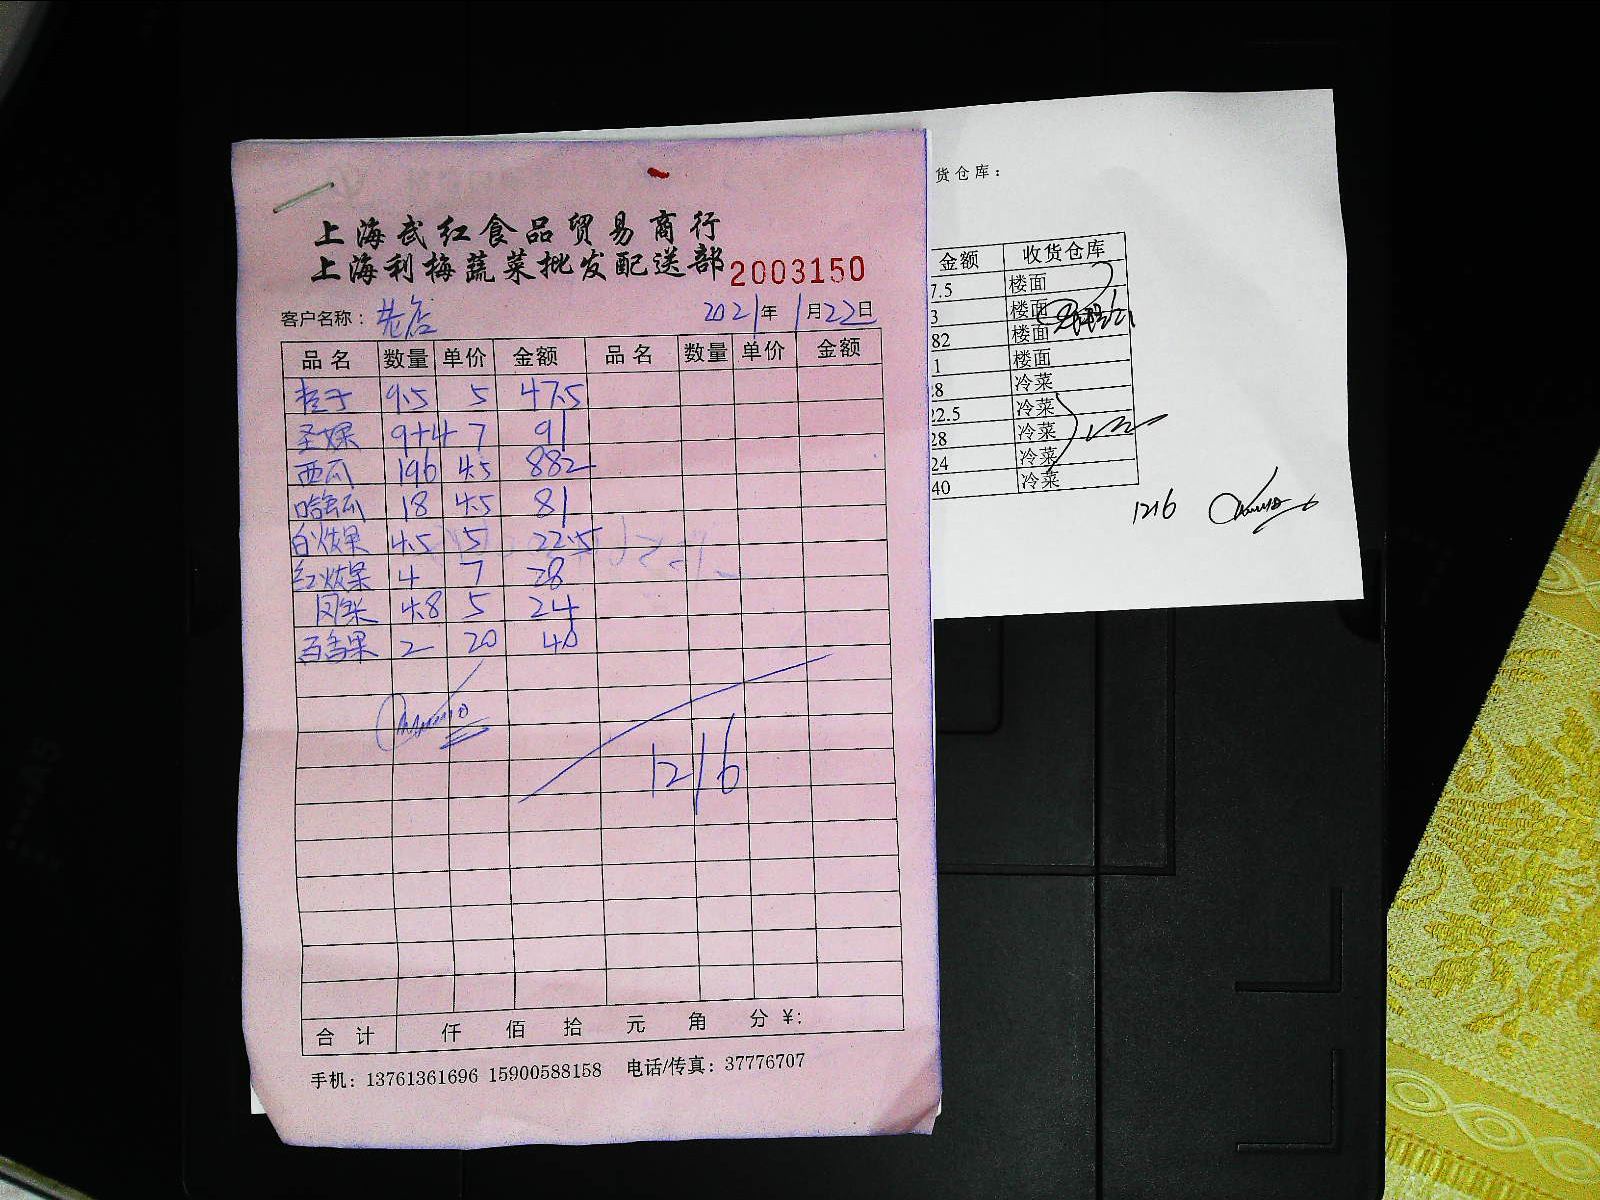 上海武红食品贸易商行
上海利梅蔬菜批发配送部 2003150
客户名称： 2021年1月22日
品名 数量 单价 金额 品名 数量 单价 金额
9.5 5 47.5
圣女果 9+4 7 91
西瓜 196 4.5 882
哈密瓜 18 4.5 81
白火龙果 4.5 5 22.5
红火龙果 4 7 28
4.8 5 24
百香果 2 20 40
1216
合计 仟 佰 拾 元 角 分 ¥:
手机：13761361696 15900588158 电话/传真：37776707
货仓库：
金额 收货仓库
7.5 楼面
3 楼面
82 楼面
1 楼面
28 冷菜
22.5 冷菜
28 冷菜
24 冷菜
40 冷菜
1216